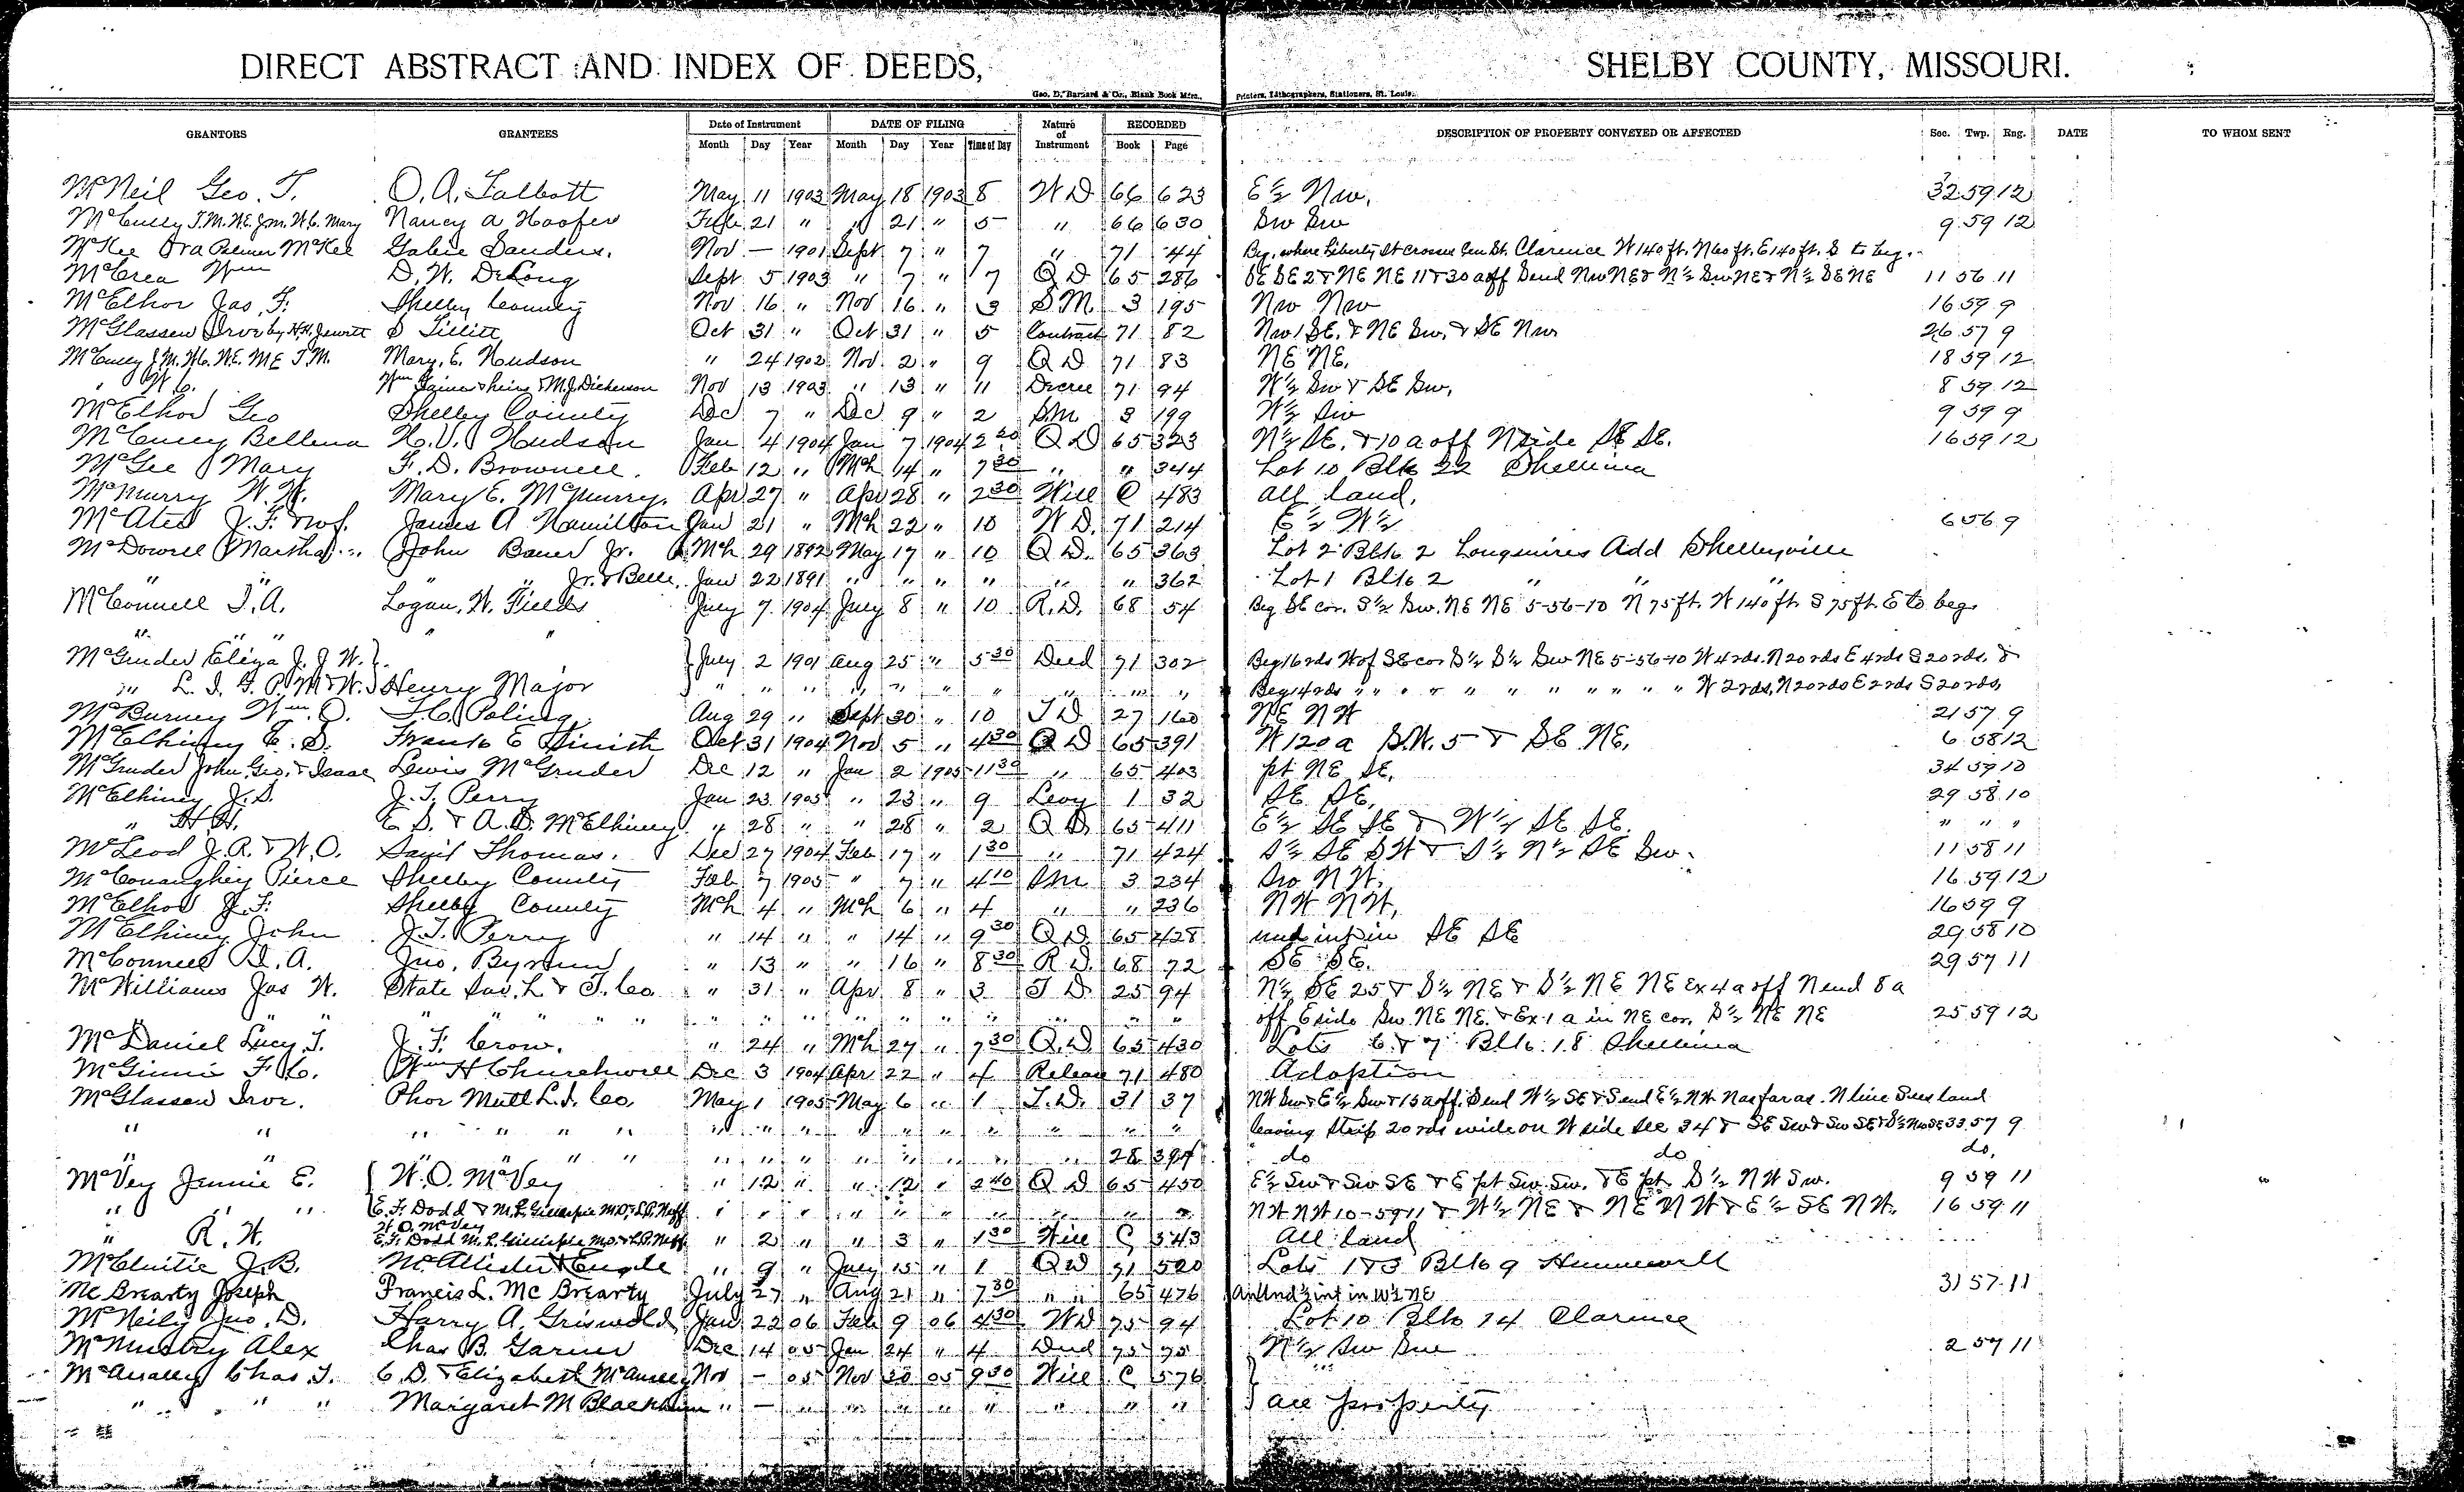 DIRECT ABSTRACT AND INDEX OF DEEDS, SHELBY COUNTY, MISSOURI.
Geo. D. Barnard & Co., Blank Book Mfrs., Printers, Lithographers, Stationers, St. Louis.
GRANTORS GRANTEES Date of Instrument DATE OF FILING Nature of Instrument RECORDED DESCRIPTION OF PROPERTY CONVEYED OR AFFECTED Sec. Twp. Rng. DATE TO WHOM SENT
Month Day Year Month Day Year Time of Day Book Page
McNeil Geo. T. O. A. Talbott May 11 1903 May 18 1903 8 W D 66 623 E½ Nw. 32 59 12
McCully T.M. W.E. J.m. W.C. Mary Nancy a Hoofer Feb 21 " " 21 " 5 " 66 630 Sw Sw 9 59 12
McKee Ora Palmer McKee Gabie Sanders. Nov — 1901 Sept 7 " 7 " 71 44 Beg. where Liberty St crosses Cen St. Clarence W 140 ft. N 60 ft. E 140 ft. S to beg.
McCrea Wm D. W. DeLong Sept 5 1903 " 7 " 7 Q D 65 286 SE SE 2 & NE NE 11 & 30 a off S end Nw NE & N½ Sw NE & N½ SE NE 11 56 11
McElhoe Jas. F. Shelby County Nov 16 " Nov 16 " 3 S.M. 3 195 Nw Nw 16 59 9
McGlassen Irvr by H.H. Jewett S Tillitt Oct 31 " Oct 31 " 5 Contract 71 82 Nw SE. & NE Sw. & SE Nw 26 57 9
McCully J.M. W.C. W.E. M E T.M. Mary. E. Hudson " 24 1902 Nov 2 " 9 Q D 71 83 NE NE. 18 59 12
" W. C. Wm Gaines heirs & M.J. Dickerson Nov 13 1903 " 13 " 11 Decree 71 94 W½ Sw & SE Sw. 8 59 12
McElhoe Geo Shelby County Dec 7 " Dec 9 " 2 S.M. 3 199 W½ Sw 9 59 9
McCully Bellena H. V. Hudson Jan 4 1904 Jan 7 1904 2 20 Q D 65 323 N½ SE. & 10 a off N side SE SE. 16 59 12
McGee Mary F. D. Brownell. Feb 12 " Mch 14 " 7 30 " " 344 Lot 10 Blk 22 Shelbina
McMurry W. W. Mary E. McMurry. Apr 27 " Apr 28 " 2 30 Will C 483 all land.
McAtee J. F. & wf. James A Hamilton Jan 21 " Mch 22 " 10 W D. 71 214 E½ W½ 6 56 9
McDowell Martha John Bauer Jr. Mch 29 1892 May 17 " 10 Q D. 65 363 Lot 2 Blk 2 Longmires Add Shelbyville
" " " " Jr. & Belle. Jan 22 1891 " " " " " " 362 Lot 1 Blk 2 " " "
McConnell T. A. Logan. W. Fields July 7 1904 July 8 " 10 R. D. 68 54 Beg SE cor. S½ Sw. NE NE 5-56-10 N 75 ft. W 140 ft. S 75 ft. E to beg.
" " " "
McGruder Eliza J. J W. July 2 1901 Aug 25 " 5 30 Deed 71 302 Beg 16 rds W of SE cor S½ S½ Sw NE 5-56-10 W 4 rds. N 20 rds E 4 rds S 20 rds. &
" L. I. G. P. M & W. Henry Major " " " " " " " " " " Beg 14 rds " " " " " " " " " " " W 2 rds, N 20 rds E 2 rds S 20 rds,
McBurney Wm. O. T. C. Poling Aug 29 " Sept 30 " 10 T D 27 160 NE NW 21 57 9
McElhiney E. S. Frank E Sinish Oct 31 1904 Nov 5 " 4 30 Q D 65 391 W 120 a S.W. 5 & SE NE. 6 58 12
McGruder John, Geo. & Isaac Lewis McGruder Dec 12 " Jan 2 1905 11 30 " 65 403 pt NE SE. 34 59 10
McElhiney J. S. J. T. Perry Jan 23 1905 " 23 " 9 Levy 1 32 SE SE. 29 58 10
" H H. E. S. & A. D. McElhiney. " 28 " " 28 " 2 Q D. 65 411 E½ SE SE & W½ SE SE. " " "
McLeod J. R. & W. O. David Thomas. Dec 27 1904 Feb 17 " 1 30 " 71 424 S½ SE SW & S½ N½ SE Sw. 11 58 11
McConaughey Pierce Shelby County Feb 7 1905 " 7 " 4 10 S m 3 234 Sw N W. 16 59 12
McElhoe J. F. Shelby County Mch 4 " Mch 6 " 4 " " 236 NW NW. 16 59 9
McElhiney John J. T. Perry " 14 " " 14 " 9 30 Q D. 65 428 und int in SE SE 29 58 10
McConnell D. A. Jno. Bynum " 13 " " 16 " 8 30 R D. 68 72 SE SE. 29 57 11
McWilliams Jas W. State Sav. L & T. Co " 31 " Apr 8 " 3 T D. 25 94 N½ SE 25 & S½ NE & S½ NE NE Ex 4 a off N end 8 a
" " " " " " " " " " " " " " " " off E side Sw. NE NE. & Ex 1 a in NE cor. S½ NE NE 25 59 12
McDaniel Lucy T. J. F. Crow. " 24 " Mch 27 " 7 30 Q. D. 65 430 Lots 6 & 7 Blk 18 Shelbina
McGinnis F. C. Wm H Churchwell Dec 3 1904 Apr 22 " 4 Release 71 480 Adoption
McGlassen Irvr. Phoe Mutl L. I. Co May 1 1905 May 6 " 1 T. D. 31 37 NW Sw & E½ Sw & 15 a off S end W½ SE & S end E½ NW N as far as N line Sues land
" " " " " " " " " " " " " " " leaving strip 20 rds wide on W side Sec 34 & SE Sw & Sw SE & S½ Nw SE 33 57 9
" " " " " " " " " " " " " 28 394 do do do.
McVey Jennie E. W. O. McVey " 12 " " 12 " 2 40 Q D 65 450 E½ Sw & Sw SE & E pt Sw Sw. & E pt S½ NW Sw. 9 59 11
" " " E. F. Dodd & M. L. Gillespie M.O. & L.P. Neff " " " " " " " " " " NW NW 10-59 11 & W½ NE & NE NW & E½ SE NW. 16 59 11
" R. W. W. O. McVey
E. F. Dodd M. L. Gillespie M.O. & L.P. Neff " 2 " " 3 " 1 30 Will C 543 All land
McClintic J. B. McAllister & Engle " 9 " July 15 " 1 Q D 71 520 Lots 1 & 3 Blk 9 Hunnewell
Mc Brearty Joseph Francis L. Mc Brearty July 27 " Aug 21 " 7 30 " " 65 476 An Und ½ int in W½ NE 31 57 11
McNeily Jno. D. Harry A. Griswold Jan 22 06 Feb 9 06 4 30 W D 75 94 Lot 10 Blk 14 Clarence
Alex Chas B. Garner Dec 14 05 Jan 24 " 4 Deed 75 75 N½ Sw 2 57 11
McAnally Chas. T. C. D. & Elizabeth McAnally Nov — 05 Nov 20 05 9 30 Will C 576
" " " Margaret M Blackburn " — " " " " " " " " all property